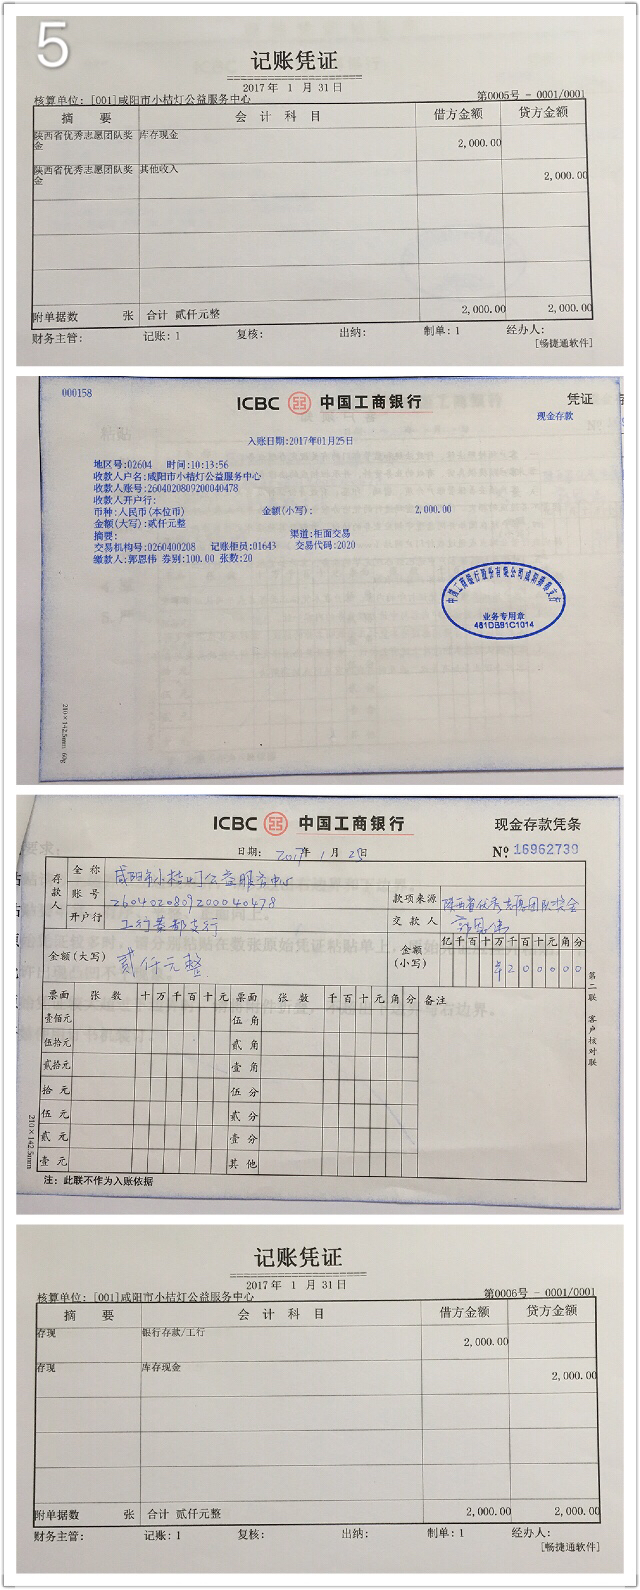 5
记账凭证
2017年 1 月 31日
核算单位: [001]咸阳市小桔灯公益服务中心 第0005号 - 0001/0001
摘 要 会 计 科 目 借方金额 贷方金额
陕西省优秀志愿团队奖金 库存现金 2,000.00
陕西省优秀志愿团队奖金 其他收入 2,000.00
附单据数 张 合计 贰仟元整 2,000.00 2,000.00
财务主管: 记账: 1 复核: 出纳: 制单: 1 经办人:
[畅捷通软件]
000158 ICBC 中国工商银行 凭证
现金存款
入账日期:2017年01月25日
地区号:02604 时间:10:13:56
收款人户名:咸阳市小桔灯公益服务中心
收款人账号:2604020809200040478
收款人开户行:
币种:人民币(本位币) 金额(小写): 2,000.00
金额(大写):贰仟元整
摘要: 渠道:柜面交易
交易机构号:0260400208 记账柜员:01643 交易代码:2020
缴款人:郭恩伟 券别:100.00 张数:20
业务专用章
481DB91C1014
210×142.5mm 60g
ICBC 中国工商银行 现金存款凭条
日期: 2017年 1 月 25日 № 16962739
存款人 全 称 咸阳市小桔灯公益服务中心
账 号 2604020809200040478 款项来源 陕西省优秀志愿团队奖金
开户行 工行秦都支行 交 款 人 郭恩伟
金额(大写) 贰仟元整 金额(小写) 亿 千 百 十 万 千 百 十 元 角 分
¥ 2 0 0 0 0 0
票面 张 数 十 万 千 百 十 元 票面 张 数 千 百 十 元 角 分 备注
壹佰元 伍 角
伍拾元 贰 角
贰拾元 壹 角
拾 元 伍 分
伍 元 贰 分
贰 元 壹 分
壹 元 其 他
第二联 客户核对联
210×142.5mm
注: 此联不作为入账依据
记账凭证
2017年 1 月 31日
核算单位: [001]咸阳市小桔灯公益服务中心 第0006号 - 0001/0001
摘 要 会 计 科 目 借方金额 贷方金额
存现 银行存款/工行 2,000.00
存现 库存现金 2,000.00
附单据数 张 合计 贰仟元整 2,000.00 2,000.00
财务主管: 记账: 1 复核: 出纳: 制单: 1 经办人:
[畅捷通软件]